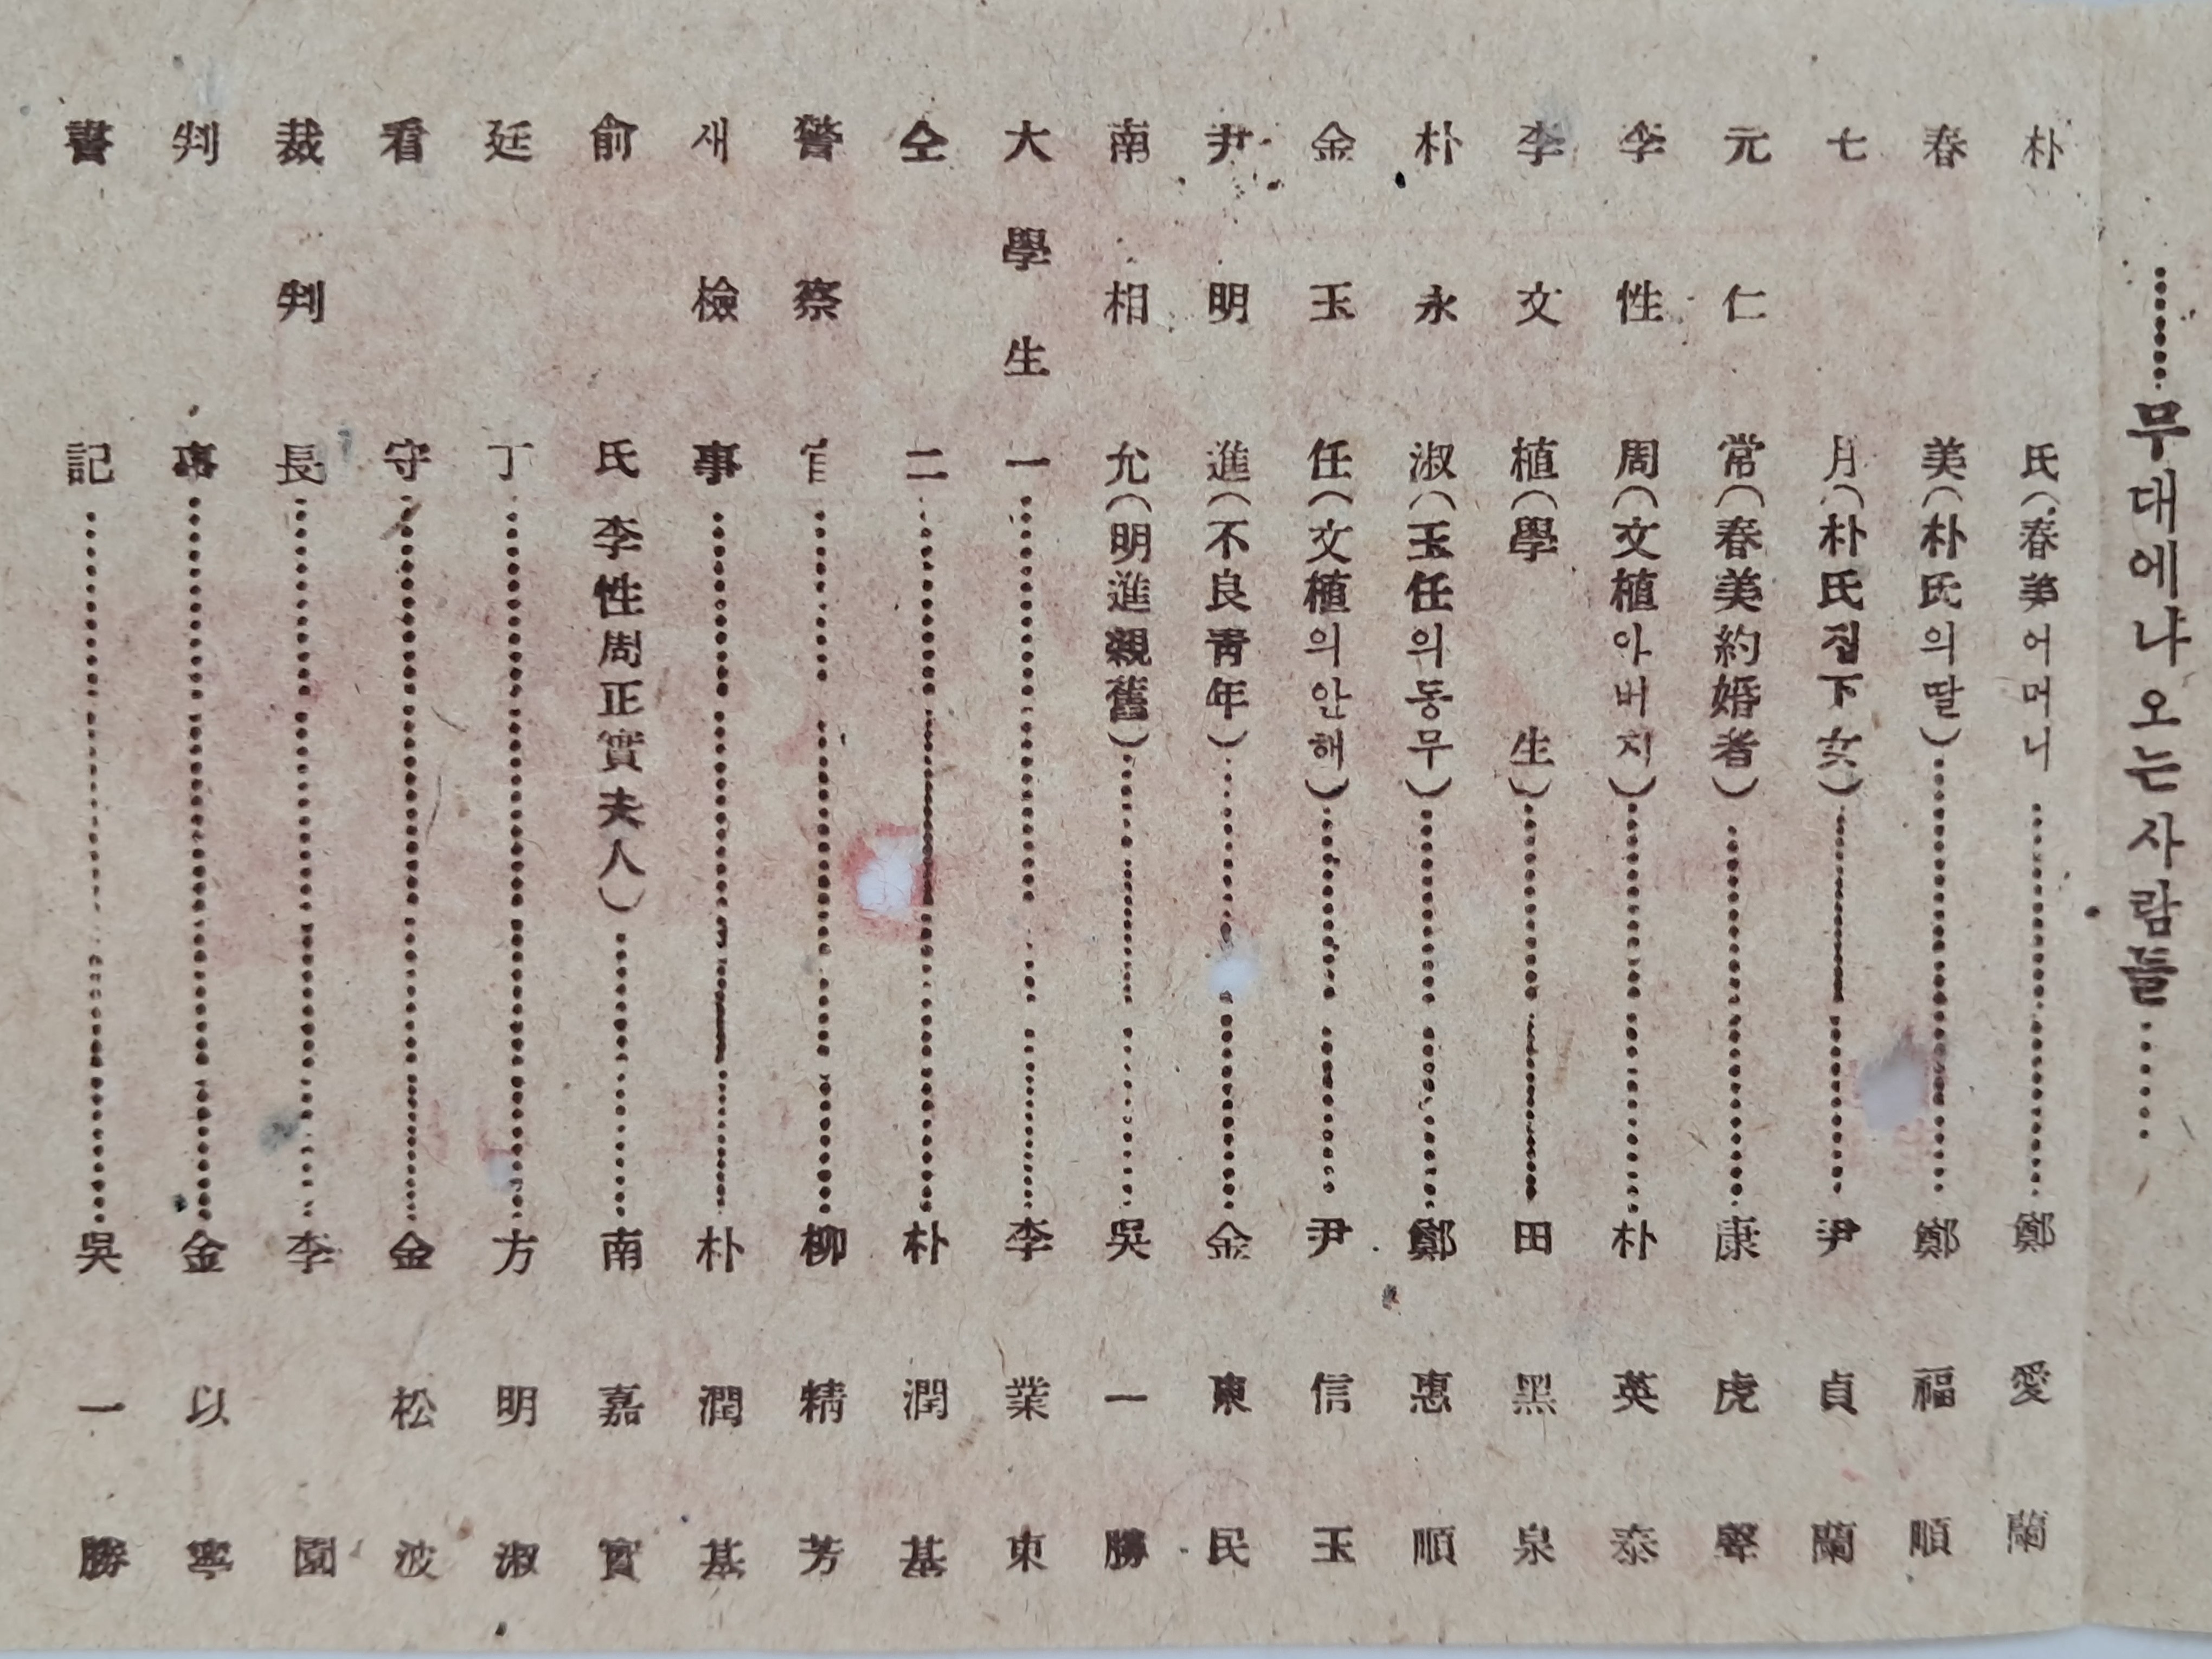 ……무대에나오는사람들……
朴氏(春美어머니………鄭愛蘭
春美(朴氏의딸)………鄭福順
七月(朴氏집下女)………尹貞蘭
元仁常(春美約婚者)………康虎聲
李性周(文植아버지)………朴英泰
李文植(學生)………田黑泉
朴永淑(玉任의동무)………鄭惠順
金玉任(文植의안해)………尹信玉
尹明進(不良靑年)………金東民
南相允(明進親舊)………吳一勝
大學生一………李業東
仝二………朴潤基
警察官………柳精芳
새檢事………朴潤基
俞氏李性周正實夫人)………南嘉實
廷丁………方明淑
看守………金松波
裁判長………李園
判事………金以寧
書記………吳一勝